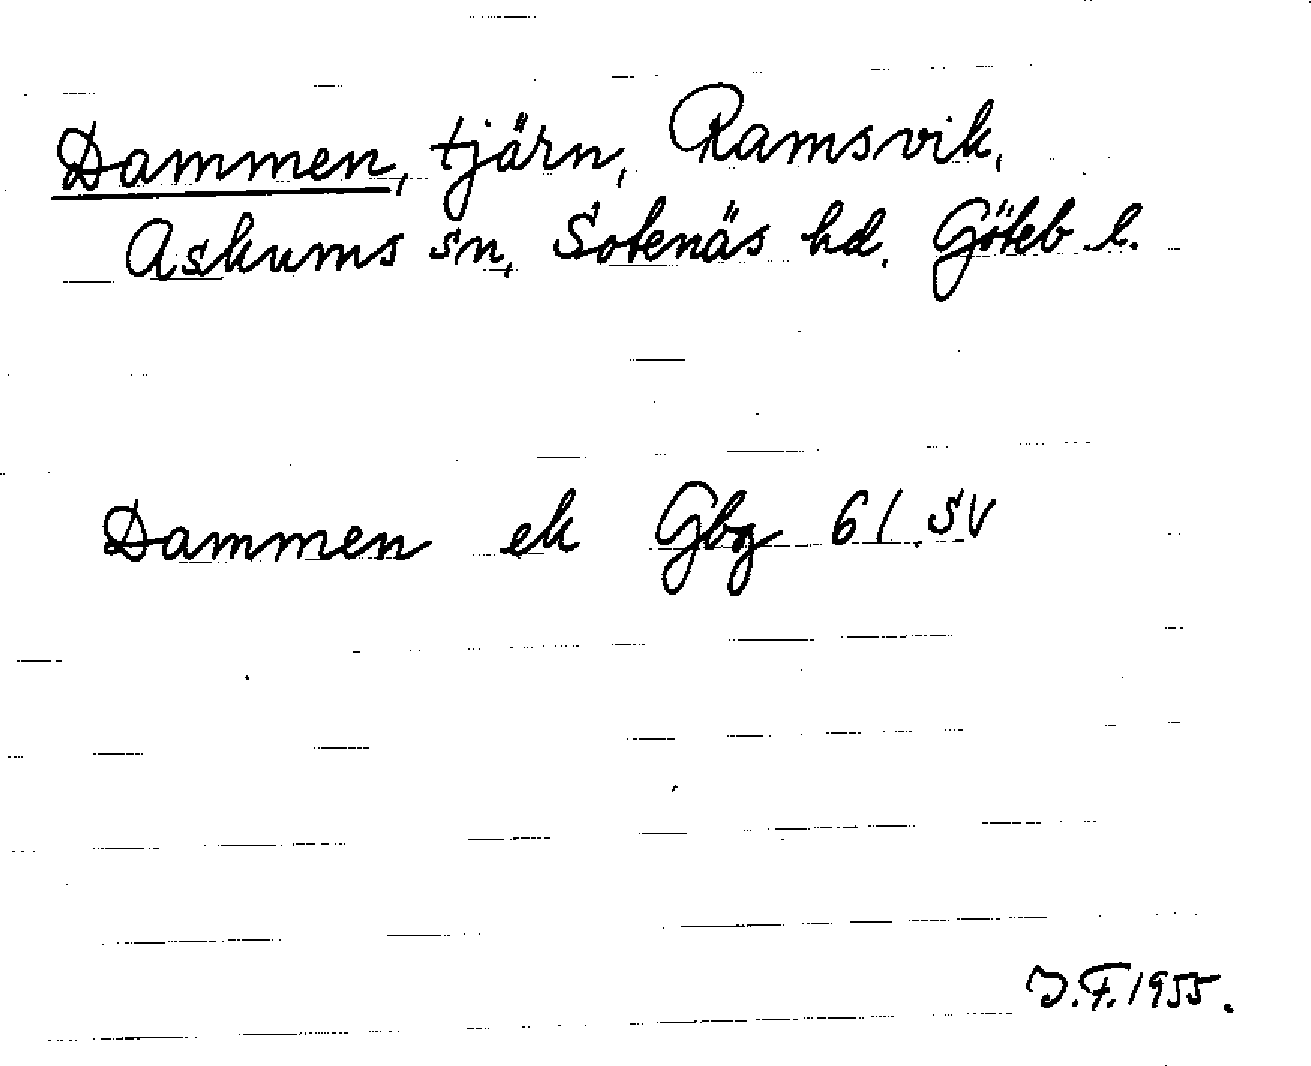 Dammen, tjärn, Ramsvik,
Askums sn, Sotenäs hd. Göteb l.
Dammen ek Gbg 61 SV
J.F. 1955.